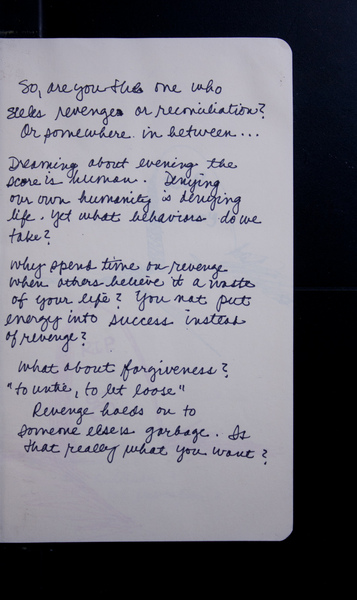 So, are you the one who
seeks revenge or reconciliation?
Or somewhere in between...
Dreaming about evening the
score is human. Denying
our own humanity is denying
life. Yet what behaviors do we
take?
Why spend time on revenge
when others believe it a waste
of your life? You not put
energy into success instead
of revenge?
What about forgiveness?
"to untie, to let loose"
Revenge holds on to
someone else's garbage. Is
that really what you want?